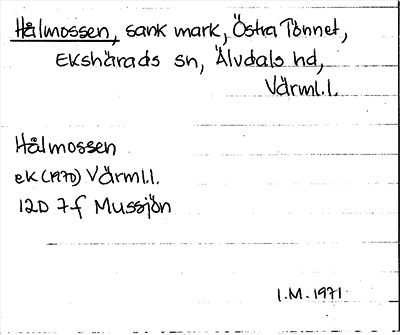 Hålmossen, sank mark, Östra Tönnet,
Ekshärads sn, Älvdals hd,
Värml.l.
Hålmossen
ek (1970) Värml.l.
12D 7f Mussjön
I.M. 1971